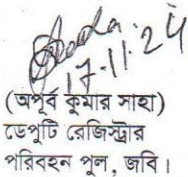 17.11.24
(অপূর্ব কুমার সাহা)
ডেপুটি রেজিস্ট্রার
পরিবহন পুল, জবি।